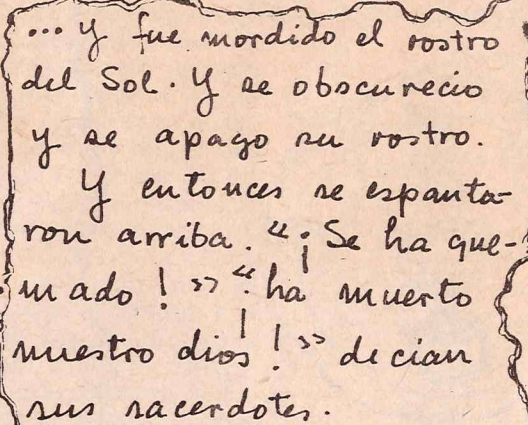 ...Y fue mordido el rostro
del Sol. Y se obscurecio
y se apago su rostro.
Y entonces se espanta-
ron arriba. "¡Se ha que-
mado!" "¡ha muerto
nuestro dios!" decian
sus sacerdotes.